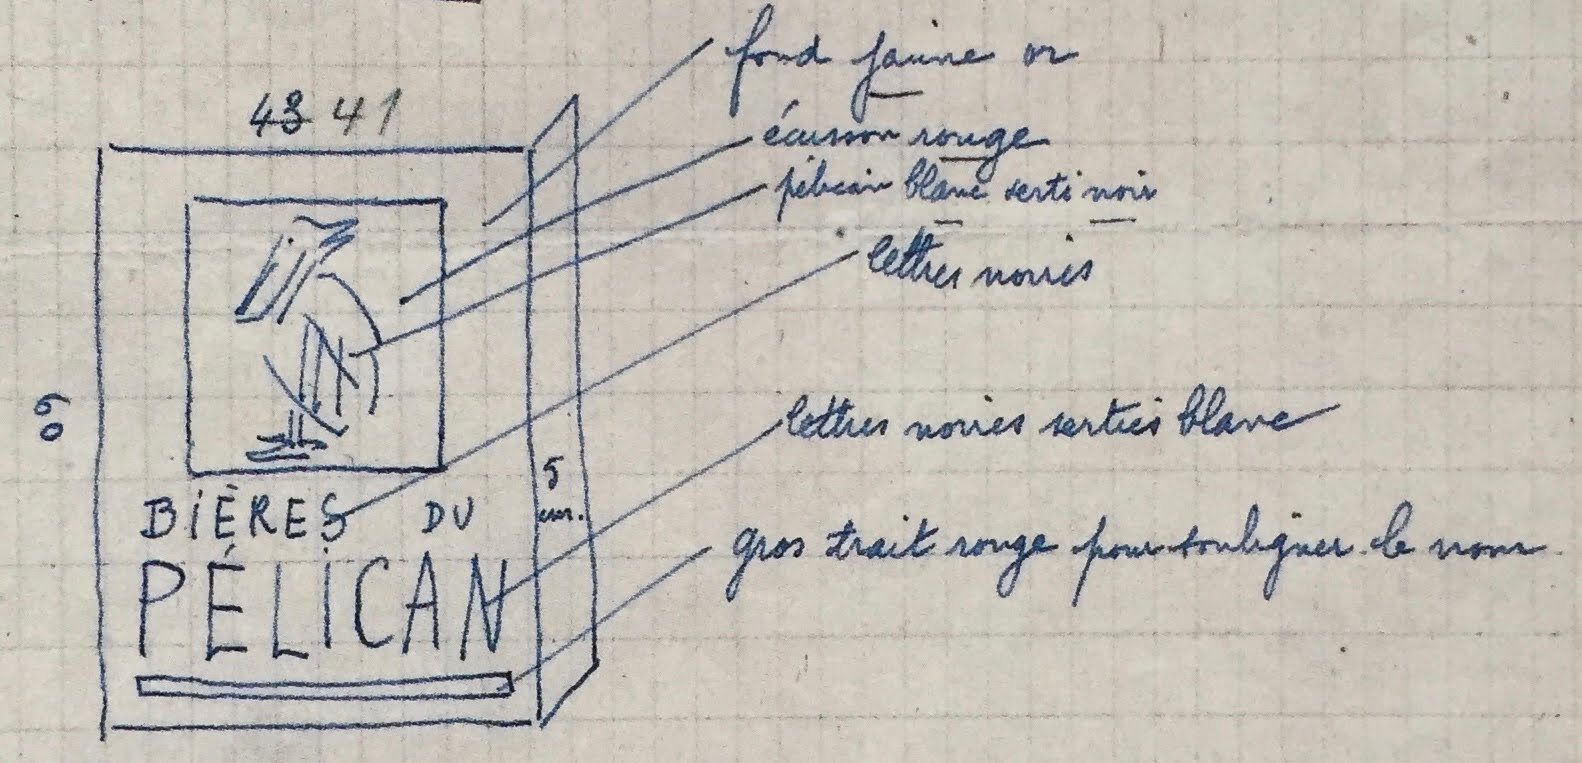 43 41
fond jaune or
écusson rouge
pélican blanc serti noir
lettres noires
60
lettres noires serties blanc
5
cm.
BIÈRES DU
PÉLICAN
gros trait rouge pour souligner le nom.